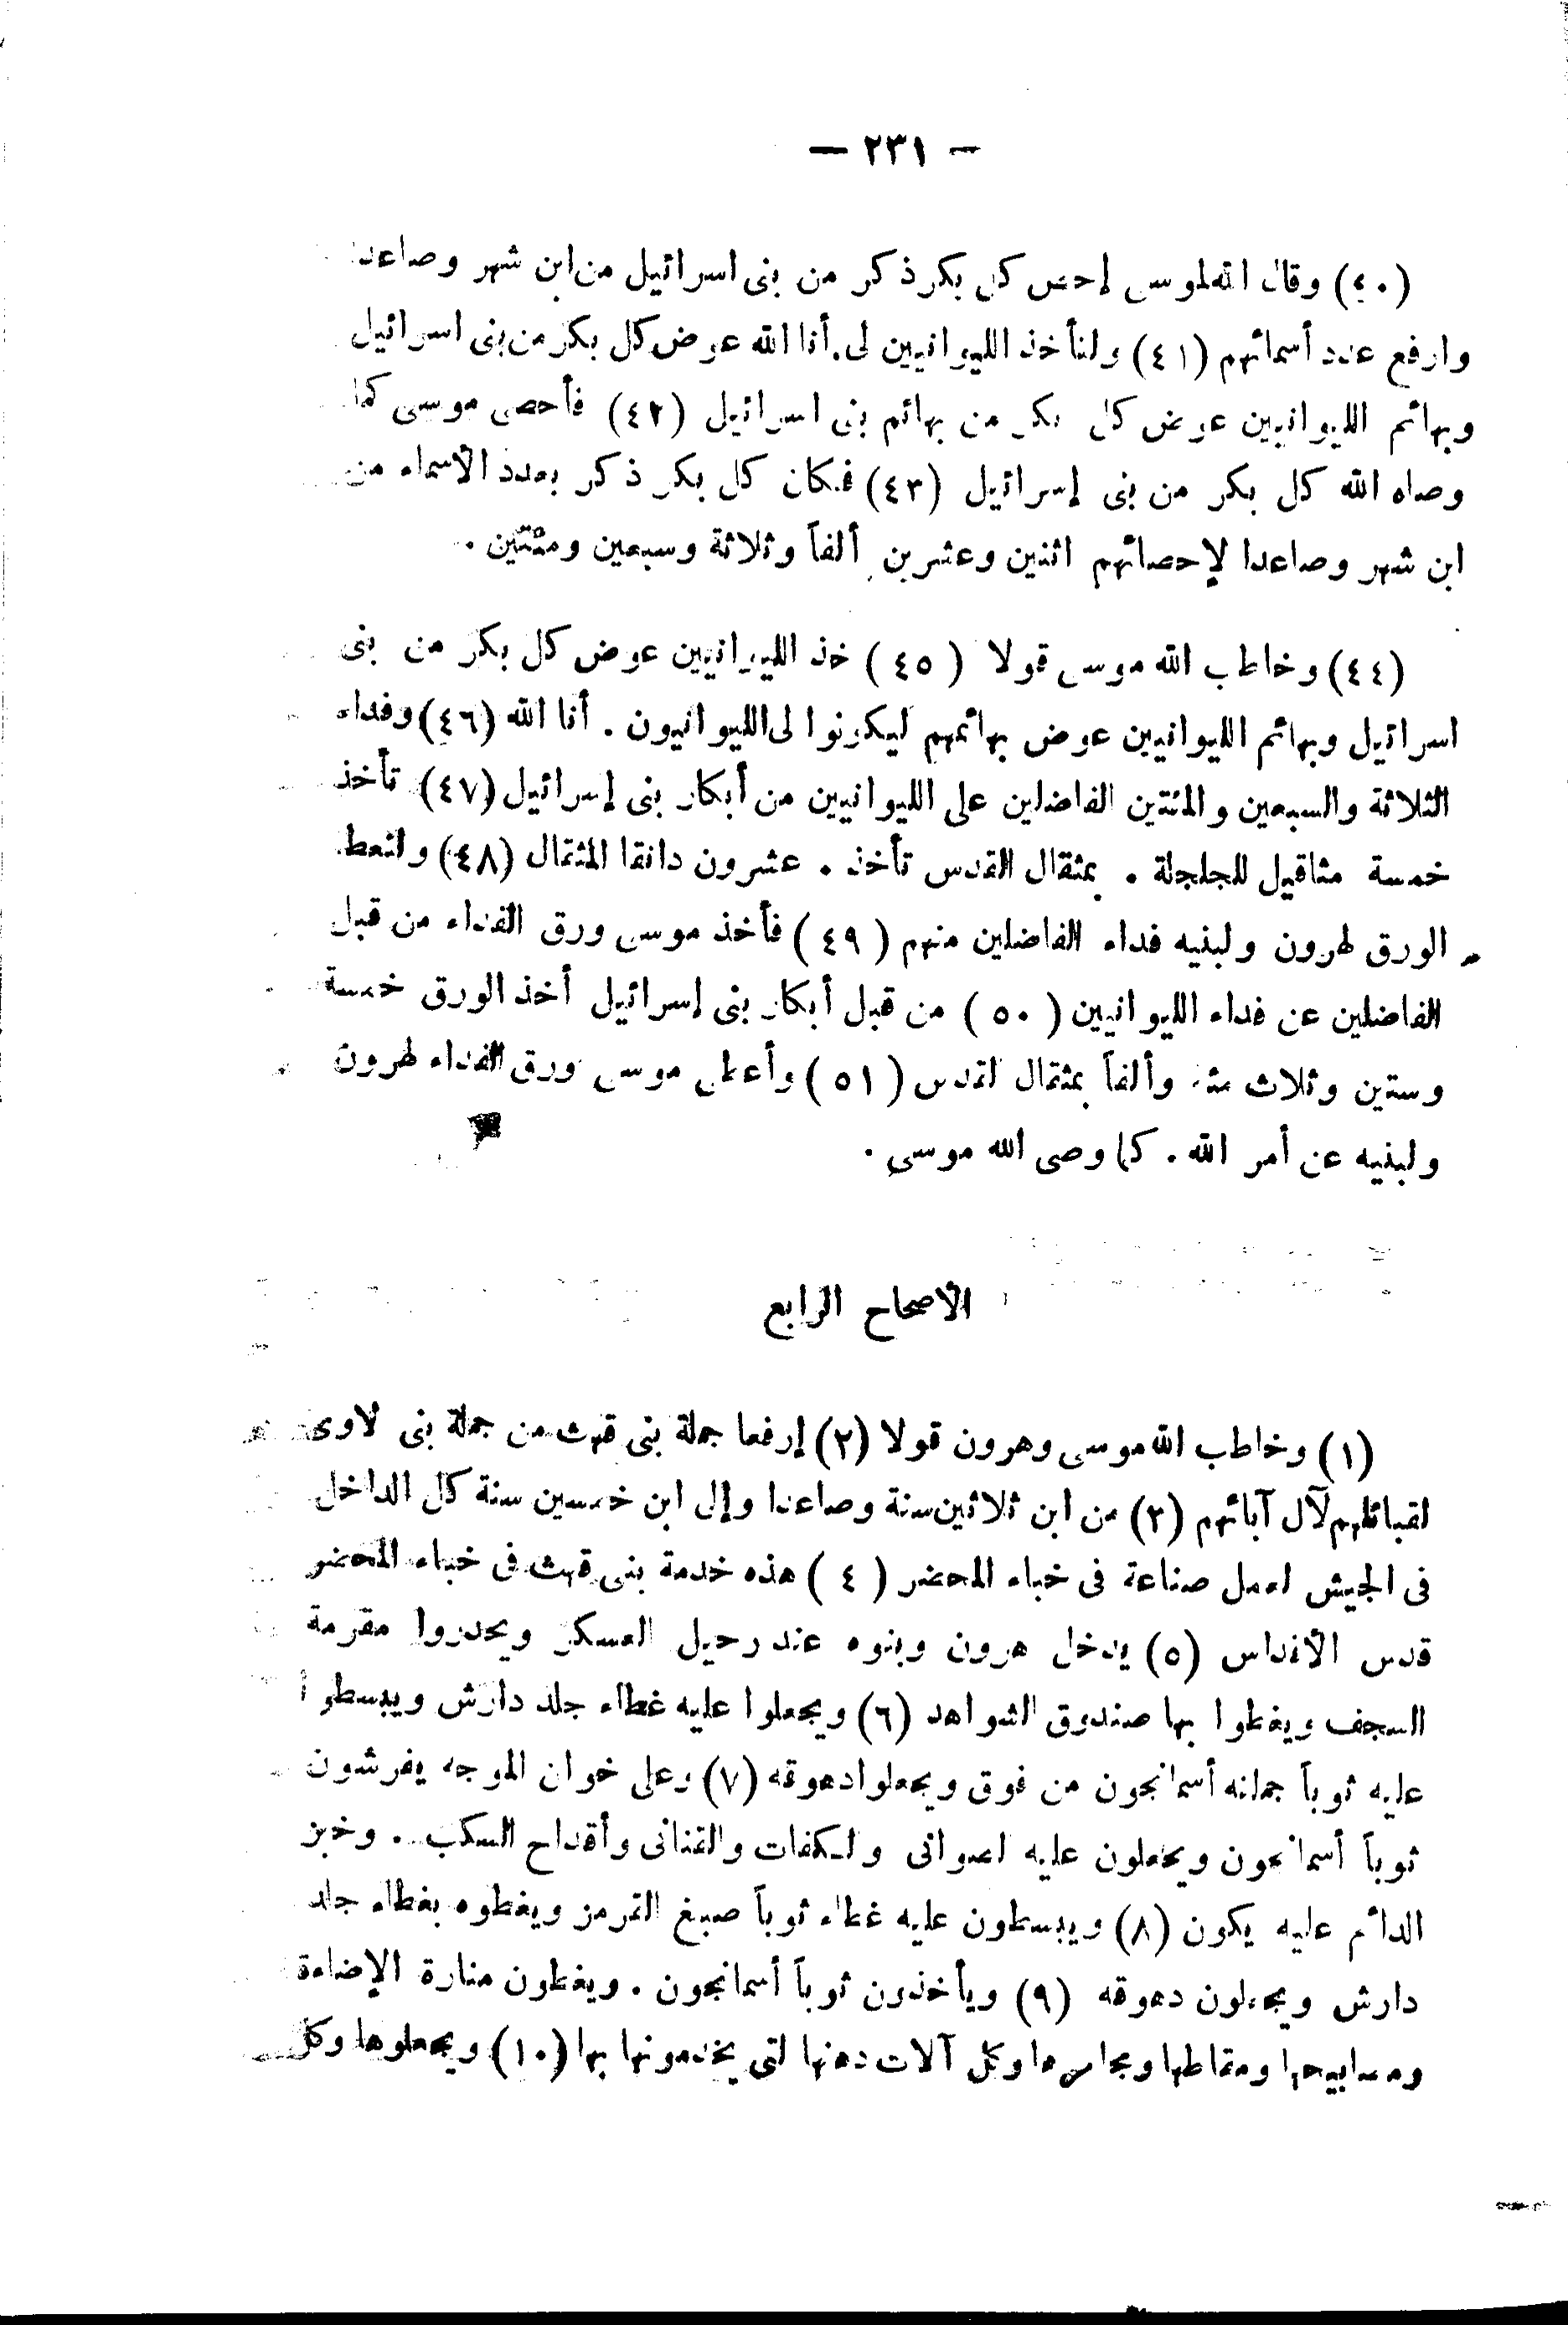 — ٢٣١ —
(٤٠) وقال الله لموسى إحص كل بكر ذكر من بنى اسرائيل من ابن شهر وصاعدا
وارفع عدد أسمائهم (٤١) ولتأخذ الليوانيين لى . أنا الله عوض كل بكر من بنى اسرائيل
وبهائم الليوانيين عوض كل بكر من بهائم بنى اسرائيل (٤٢) فأحصى موسى كما
وصاه الله كل بكر من بنى إسرائيل (٤٣) فكان كل بكر ذكر بعدد الأسماء من
ابن شهر وصاعدا لإحصائهم اثنين وعشرين ألفاً وثلاثة وسبعين ومئتين .
(٤٤) وخاطب الله موسى قولا (٤٥) خذ الليوانيين عوض كل بكر من بنى
اسرائيل وبهائم الليوانيين عوض بهائمهم ليكونوا لى الليوانيون . أنا الله (٤٦) وفداء
الثلاثة والسبعين والمئتين الفاضلين على الليوانيين من أبكار بنى إسرائيل (٤٧) تأخذ
خمسة مثاقيل للجلجلة . بمثقال القدس تأخذ . عشرون دانقا المثقال (٤٨) ولتعط
الورق لهرون ولبنيه فداء الفاضلين منهم (٤٩) فأخذ موسى ورق الفداء من قبل
الفاضلين عن فداء الليوانيين (٥٠) من قبل أبكار بنى إسرائيل أخذ الورق خمسة
وستين وثلاث مئة وألفاً بمثقال القدس (٥١) وأعطى موسى ورق الفداء لهرون
ولبنيه عن أمر الله . كما وصى الله موسى .
الأصحاح الرابع
(١) وخاطب الله موسى وهرون قولا (٢) إرفعا جملة بنى قهث من جملة بنى لاوى
لقبائلهم لآل آبائهم (٣) من ابن ثلاثين سنة وصاعدا وإلى ابن خمسين سنة كل الداخل
فى الجيش لعمل صناعة فى خباء المحضر (٤) هذه خدمة بنى قهث فى خباء المحضر
قدس الأقداس (٥) يدخل هرون وبنوه عند رحيل العسكر ويحدروا مقرمة
السجف ويغطوا بها صندوق الشواهد (٦) ويجعلوا عليه غطاء جلد دارش ويبسطوا
عليه ثوباً جملته أسمانجون من فوق ويجعلوا دهوقه (٧) وعلى خوان الموجه يفرشون
ثوباً أسمانجون ويجعلون عليه الصوانى والكفات والقنانى وأقداح السكب . وخبز
الدائم عليه يكون (٨) ويبسطون عليه غطاء ثوباً صبغ القرمز ويغطوه بغطاء جلد
دارش ويجعلون دهوقه (٩) ويأخذون ثوباً أسمانجون . ويغطون منارة الإضاءة
ومصابيحها وملقاطها ومجامرها وكل آلات دهنها التى يخدمونها بها (١٠) ويجعلوها وكل